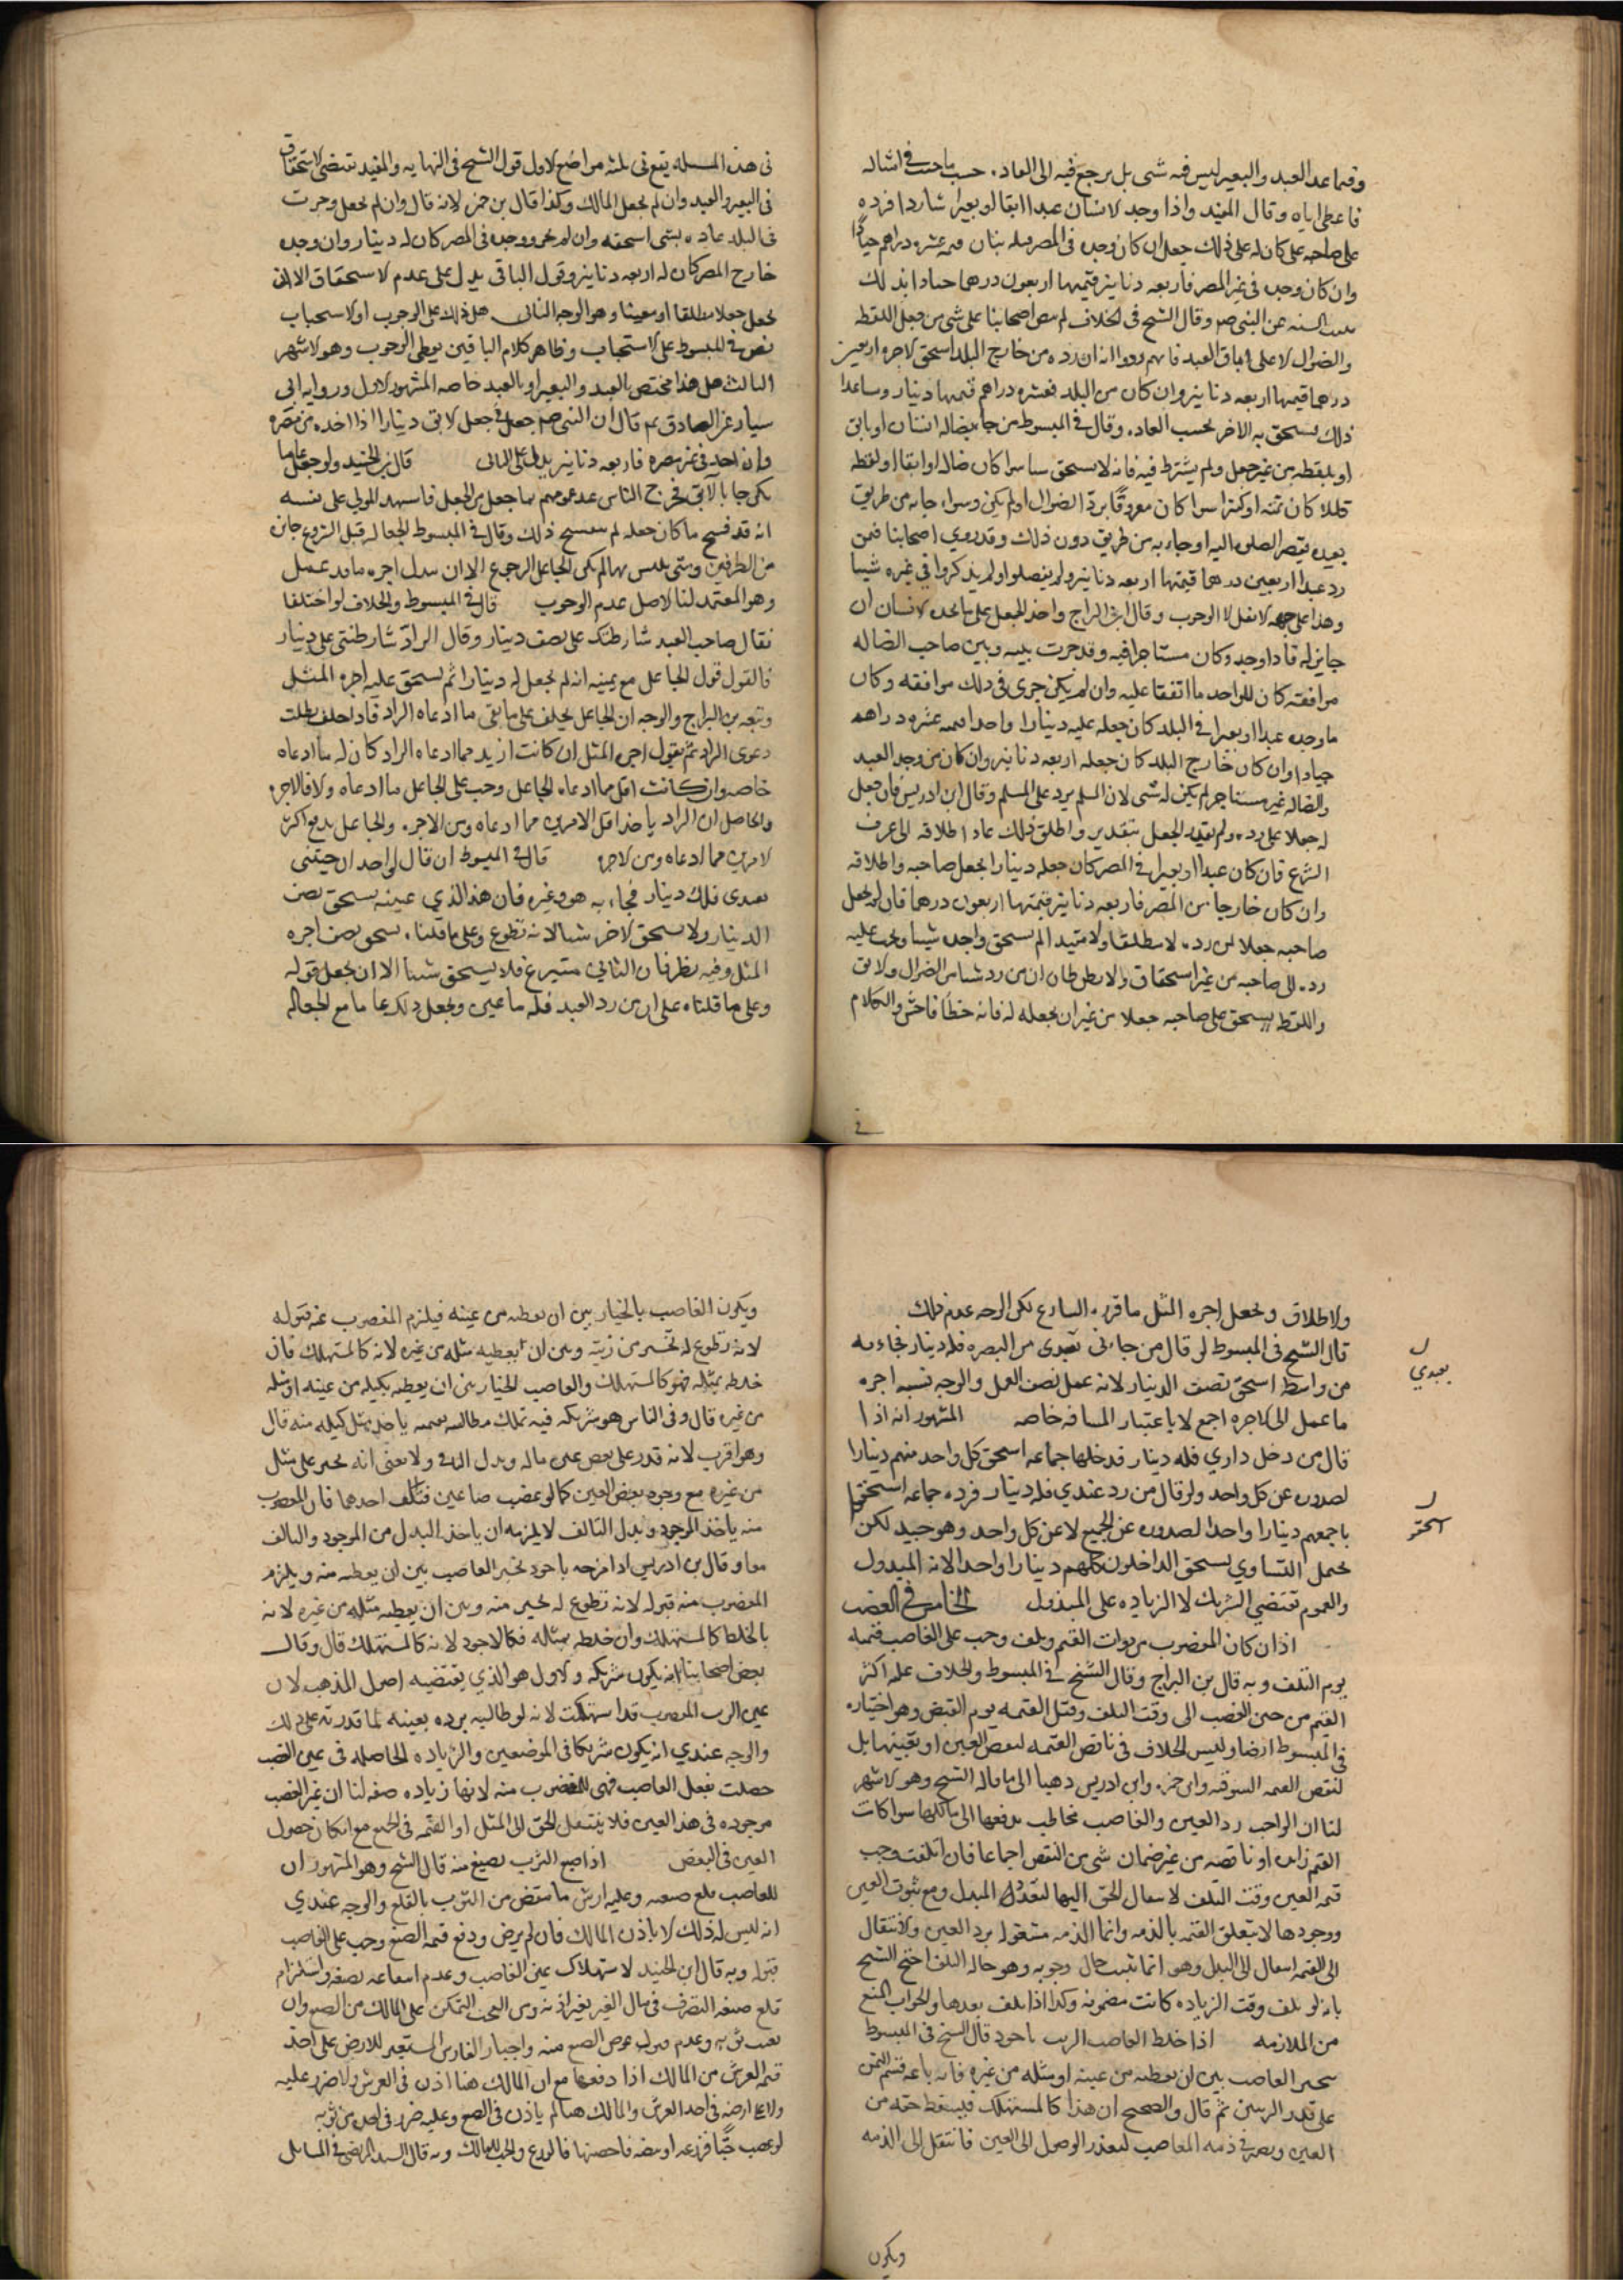 وفيما عدا العبد والبعير ليس فيه شى بل يرجع فيه الى العاده حسب ما جرت فى امثاله
فاعطى اياه وقال المفيد واذا وجد الانسان عبدا ابقا او بعيرا شاردا فرده
على صاحبه على كان له على ذلك جعل ان كان وجده فى المصر دينار قيمته عشره دراهم جيادا
وان كان وجده فى غير المصر فاربعه دنانير قيمتها اربعون درهما جيادا بذلك
السنه عن النبى وقال الشيخ فى الخلاف لم ينص اصحابنا على شى من جعل اللقطه
والضوال الا على اباق العبد فانهم رووا انه ان رده من خارج البلد استحق الاجره اربعين
درهما قيمتها اربعه دنانير وان كان من البلد فعشره دراهم قيمتها دينار وما عدا
ذلك يستحق به الاجر بحسب العاده وقال فى المبسوط من جا بضاله انسان او بابق
او بلقطه من غير جعل ولم يشترط فيه فانه لا يستحق شيا سوا كان ضاله او ابقا او لقطه
قليلا كان ثمنه او كثيرا سوا كان معروفا برد الضوال او لم يكن وسواء جابه من طريق
بعيد يقصر الصلوه اليه او جاء به من طريق دون ذلك وقد روى اصحابنا فيمن
رد عبدا اربعين درهما قيمتها اربعه دنانير ولم يفصلوا ولم يذكروا فى غيره شيا
وهذا على جهه الافضل لا الوجوب وقال ابن البراج واخذ الجعل على ما يجده الانسان ان
جايز له فاذا وجده وكان مستاجرا فيه وقد جرت بينه وبين صاحب الضاله
موافقه كان للواجد ما اتفقا عليه وان لم يكن جرى فى ذلك موافقه وكان
ما وجده عبدا او بعيرا فى البلد كان جعله عليه دينارا واحدا قيمه عشره دراهم
جيادا وان كان خارج البلد كان جعله اربعه دنانير وان كان من وجد العبد
والضاله غير مستاجر لم يكن له شى لان المسلم يرد على المسلم وقال ابن ادريس فان جعل
له جعلا على رده ولم يقيد الجعل بتقدير واطلق ذلك عاد اطلاقه الى عرف
الشرع فان كان عبدا او بعيرا فى المصر كان جعله دينارا لجعل صاحبه واطلاقه
وان كان خارجا من المصر فاربعه دنانير قيمتها اربعون درهما فان لم يجعل
صاحبه جعلا لمن رده لا مطلقا ولا مقيدا لم يستحق واجده شيا ويجب عليه
رده الى صاحبه من غير استحقاق ولا يظن ظان ان من رد شيا من الضوال والابق
واللقطه يستحق على صاحبه جعلا من غير ان يجعله له فانه خطأ فاحش والكلام
فى هذه المسله يقع فى ثلثه مواضع الاول قول الشيخ فى النهايه والمفيد تقتضى الاستحقاق
فى البعير والعبد وان لم يجعل المالك وكذا قال بن حمزه لانه قال وان لم يجعل وجرت
فى البلد عاده بشى استحقه وان لم تجر ووجده فى المصر كان له دينار وان وجده
خارج المصر كان له اربعه دنانير وقول الباقى يدل على عدم الاستحقاق الا ان
يجعل جعلا مطلقا او معينا وهو الوجه الثانى هل ذلك على الوجوب او الاستحباب
نص فى المبسوط على الاستحباب وظاهر كلام الباقين يعطى الوجوب وهو الاشهر
الثالث هل هذا مختص بالعبد والبعير او بالعبد خاصه المشهور الاول وروايه ابى
سيار عن الصادق قال ان النبى جعل فى جعل الابق دينارا اذا اخذه من مصره
وان اخذ فى غير مصره فاربعه دنانير يدل على الثانى قال بن الجنيد ولو جعل عاما
لمن جا بالابق فخرج الناس عدعوهم بما جعل من الجعل فاشهد المولى على نفسه
انه قد فسخ ما كان جعله لم ينفسخ ذلك وقال فى المبسوط الجعاله قبل الشروع جائزه
من الطرفين ومتى تلبس بها لم يكن للجاعل الرجوع الا ان يبذل اجره ما قد عمل
وهو المعتمد لنا الاصل عدم الوجوب قال فى المبسوط والخلاف لو اختلفا
فقال صاحب العبد شارطتك على نصف دينار وقال الراد شارطتنى على دينار
فالقول قول الجاعل مع يمينه انه لم يجعل له دينارا ثم يستحق عليه اجره المثل
وتبعه بن البراج والوجه ان الجاعل يحلف على ما نفى ما ادعاه الراد فاذا حلف بطلت
دعوى الراد ثم يقول اجره المثل ان كانت ازيد مما ادعاه الراد كان له ما ادعاه
خاصه وان كانت اقل مما ادعاه الجاعل وجب على الجاعل ما ادعاه والا فالاجره
والحاصل ان الراد ياخذ اقل الامرين مما ادعاه ومن الاجره والجاعل يدفع اكثر
الامرين مما ادعاه ومن الاجره قال فى المبسوط ان قال لواحد ان جيتنى
بعبدى فلك دينار فجاء به هو وغيره فان هذا الذى عينه يستحق نصف
الدينار ولا يستحق الاخر شيا لانه تطوع وعلى ما قلناه يستحق نصف اجره
المثل وفيه نظر فان الثانى متبرع فلا يستحق شيئا الا ان يجعل قوله
وعلى ما قلناه على ان من رد العبد فله ما عين ويجعل ذلك عاما مع الجعاله
والاطلاق ويجعل اجره المثل ما قرره الشارع لكن الوجه عدم ذلك
قال الشيخ فى المبسوط لو قال من جاءنى بعبدى من البصره فله دينار فجاء به
من واسط استحق نصف الدينار لانه عمل نصف العمل والوجه نسبه اجره
ما عمل الى الاجره اجمع لا باعتبار المسافه خاصه المشهور انه اذا
قال من دخل دارى فله دينار فدخلها جماعه استحق كل واحد منهم دينارا
لصدوره عن كل واحد ولو قال من رد عبدى فله دينار فرده جماعه استحقوا
باجمعهم دينارا واحدا لصدوره عن الجميع لا عن كل واحد وهو جيد لكن
يحتمل التساوى يستحق الداخلون كلهم دينارا واحدا لانه المبذول
والعموم تقتضى الشريك لا الزياده على المبذول الخامس فى الغصب
اذا كان المغصوب من ذوات القيم وتلف وجب على الغاصب قيمته
يوم التلف وبه قال بن البراج وقال الشيخ فى المبسوط والخلاف عليه اكثر
القيم من حين الغصب الى وقت التلف وقيل القيمه يوم القبض وهو اختياره
فى المبسوط ايضا وليس الخلاف فى ناقص القيمه لنقص العين او تعيبها بل
لنقص القيمه السوقيه وابن حمزه وابن ادريس ذهبا الى ما قاله الشيخ وهو الاشهر
لنا ان الواجب رد العين والغاصب مخاطب بدفعها الى مالكها سوا كانت
القيم زايده او ناقصه من غير ضمان شى من النقص اجماعا فان اتلفت وجب
قيمه العين وقت التلف لانتقال الحق اليها لتعذر المبدل ومع ثبوت العين
ووجودها لا يتعلق القيمه بالذمه وانما الذمه مشغوله برد العين والانتقال
الى القيمه انتقال الى البدل وهو انما تثبت حال وجوبه وهو حاله التلف احتج الشيخ
بانه لو تلف وقت الزياده كانت مضمونه وكذا اذا تلف بعدها والجواب المنع
من الملازمه اذا خلط الغاصب الزيت باجود قال الشيخ فى المبسوط
يتخير الغاصب بين ان يعطيه من عينه او مثله من غيره فان باعه قسم الثمن
على قدر الزيتين ثم قال والصحيح ان هذا كالمستهلك فيسقط حقه من
العين ويصير فى ذمه الغاصب لتعذر الوصول الى العين فانتقل الى الذمه
بعبدي
استحقو
ويكون
ويكون الغاصب بالخيار بين ان يعطيه من عينه فيلزم المغصوب عنه قبوله
لانه تطوع له بخير من زيته وبين ان يعطيه مثله من غيره لانه كالمستهلك فان
خلطه بمثله فهو كالمستهلك والغاصب بالخيار بين ان يعطيه بكيله من عينه او مثله
من غيره قال وفى الناس هو شريكه فيه يملك مطالبته بقسمه ياخذ مثل كيله منه قال
وهو اقرب لانه قدر على بعض عين ماله وبدل الباقى ولا معنى انه يجبر على مثل
من غيره مع وجود بعض العين كما لو غصب صاعين فتلف احدهما فان المغصوب
منه ياخذ الموجود وبدل التالف لا يلزمه ان ياخذ البدل من الموجود والتالف
معا وقال بن ادريس اذا مزجه باجود تخير الغاصب بين ان يعطيه منه ويلزم
المغصوب منه قبوله لانه تطوع له بخير منه وبين ان يعطيه مثله من غيره لانه
بالخلط كالمستهلك وان خلطه بمثله فكالاجود لانه كالمستهلك قال وقال
بعض اصحابنا انه يكون شريكه والاول هو الذى يقتضيه اصول المذهب لان
عين الزيت المغصوب قد استهلكت لانه لو طالبه برده بعينه لما قدر على ذلك
والوجه عندي انه يكون شريكا فى الموضعين والزياده الحاصله فى عين الغصب
حصلت بفعل الغاصب فهى للمغضوب منه لانها زياده صفه لنا ان عين الغصب
موجوده فى هذا العين فلا ينتقل الحق الى المثل او القيمه فى الجميع مع امكان حصول
العين فى البعض اذا صبغ الثوب بصبغ منه قال الشيخ وهو المشهور ان
للغاصب قلع صبغه وعليه ارش ما ينقص من الثوب بالقلع والوجه عندي
انه ليس له ذلك الا باذن المالك فان لم يرض ودفع قيمه الصبغ وجب على الغاصب
قبوله وبه قال ابن الجنيد لاستهلاك عين الغاصب وعدم انتفاعه بصبغه واستلزام
قلع صبغه التصرف فى مال الغير بغير اذنه ومن البحت التمكن على المالك من الصبغ وان
تعيب ثوبه وعدم قبول عوض الصبغ منه واجبار الغارس المستعير للارض على اخذ
قيمه الغرس من المالك اذا دفعها مع ان المالك هنا اذن فى الغرس ولا ضرر عليه
ولا على ارضه فى اخذ الغرس والمالك هنا لم ياذن فى الصبغ وعليه ضرر فى اخذه من ثوبه
لو غصب حبا فزرعه او بيضه فاحضنها فالزرع والفرخ للمالك وبه قال السيد المرتضى فى المسايل